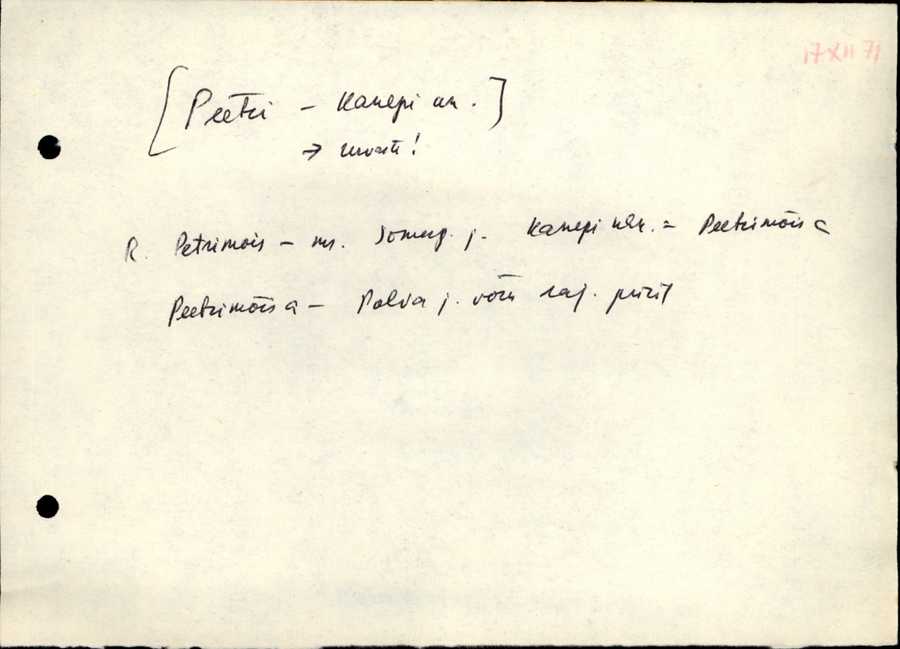 17 XII 71
[Peetri – Kanepi khn.]
→ 
R. Petrimois – ms. Somerp. j. Kanepi khn. = Peetrimõisa
Peetrimõisa – Põlva j. Võru raj. piiril